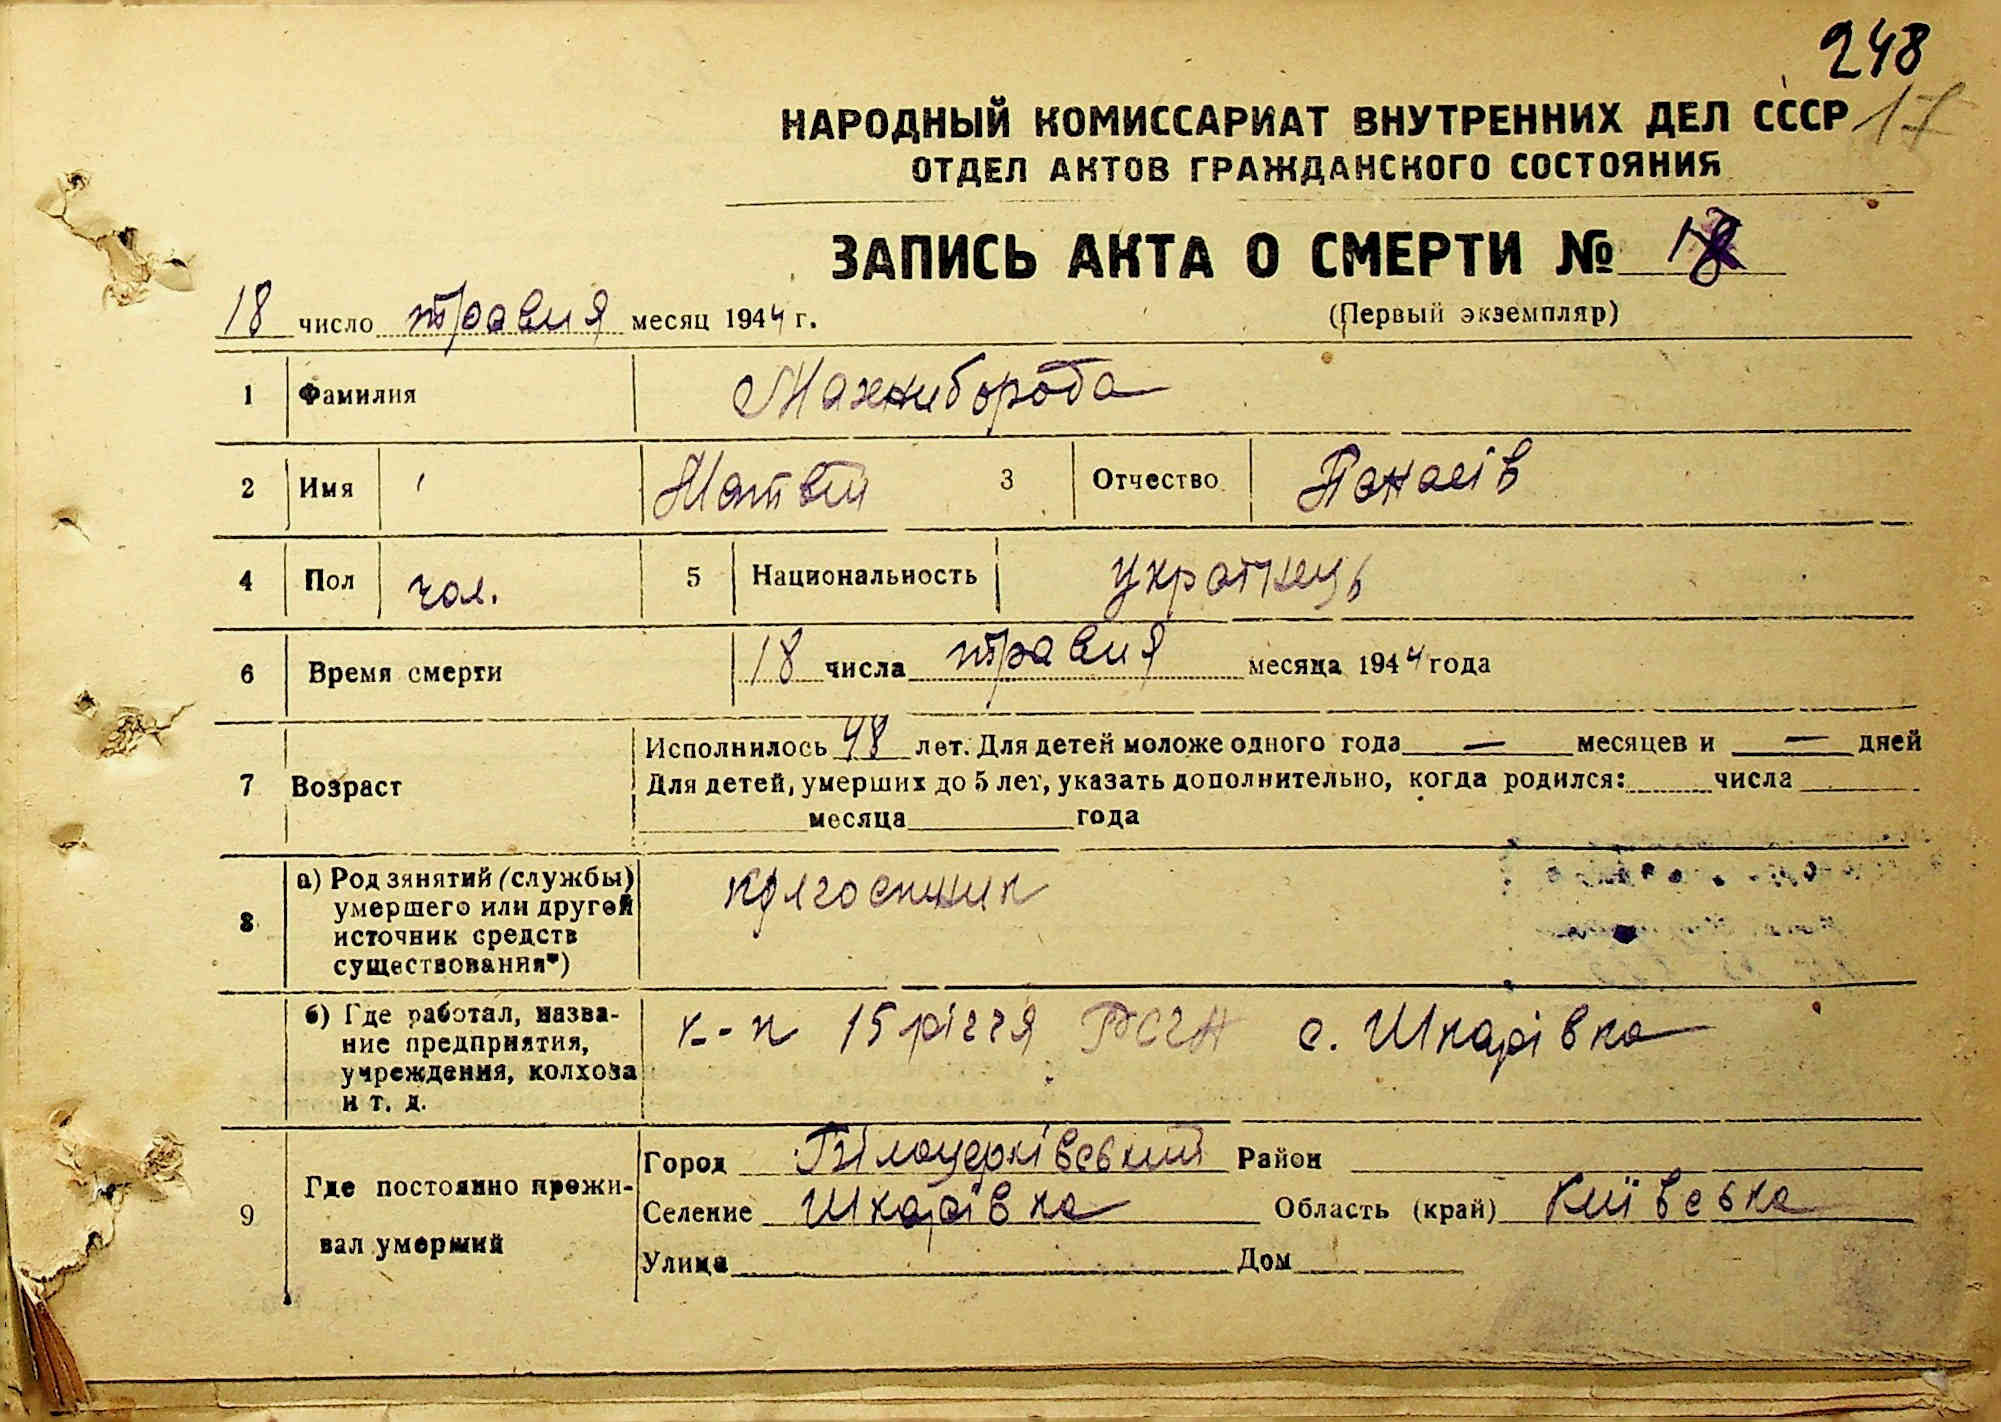 248
НАРОДНЫЙ КОМИССАРИАТ ВНУТРЕННИХ ДЕЛ СССР 17
ОТДЕЛ АКТОВ ГРАЖДАНСКОГО СОСТОЯНИЯ
ЗАПИСЬ АКТА О СМЕРТИ № 18
18 число травня месяц 1944 г. (Первый экземпляр)
1 Фамилия Махниборода
2 Имя Матвій 3 Отчество Панасів
4 Пол чол. 5 Национальность українець
6 Время смерти 18 числа травня месяца 1944 года
Исполнилось 48 лет. Для детей моложе одного года — месяцев и — дней
7 Возраст Для детей, умерших до 5 лет, указать дополнительно, когда родился: числа
месяца года
8 а) Род занятий (службы) колгоспник
умершего или другой
источник средств
существования*)
б) Где работал, назва- к-п 15 річчя РСЧА с. Шкарівка
ние предприятия,
учреждения, колхоза
и т. д.
9 Где постоянно прожи-
вал умерший
Город Білоцерківський Район
Селение Шкарівка Область (край) Київська
Улица Дом